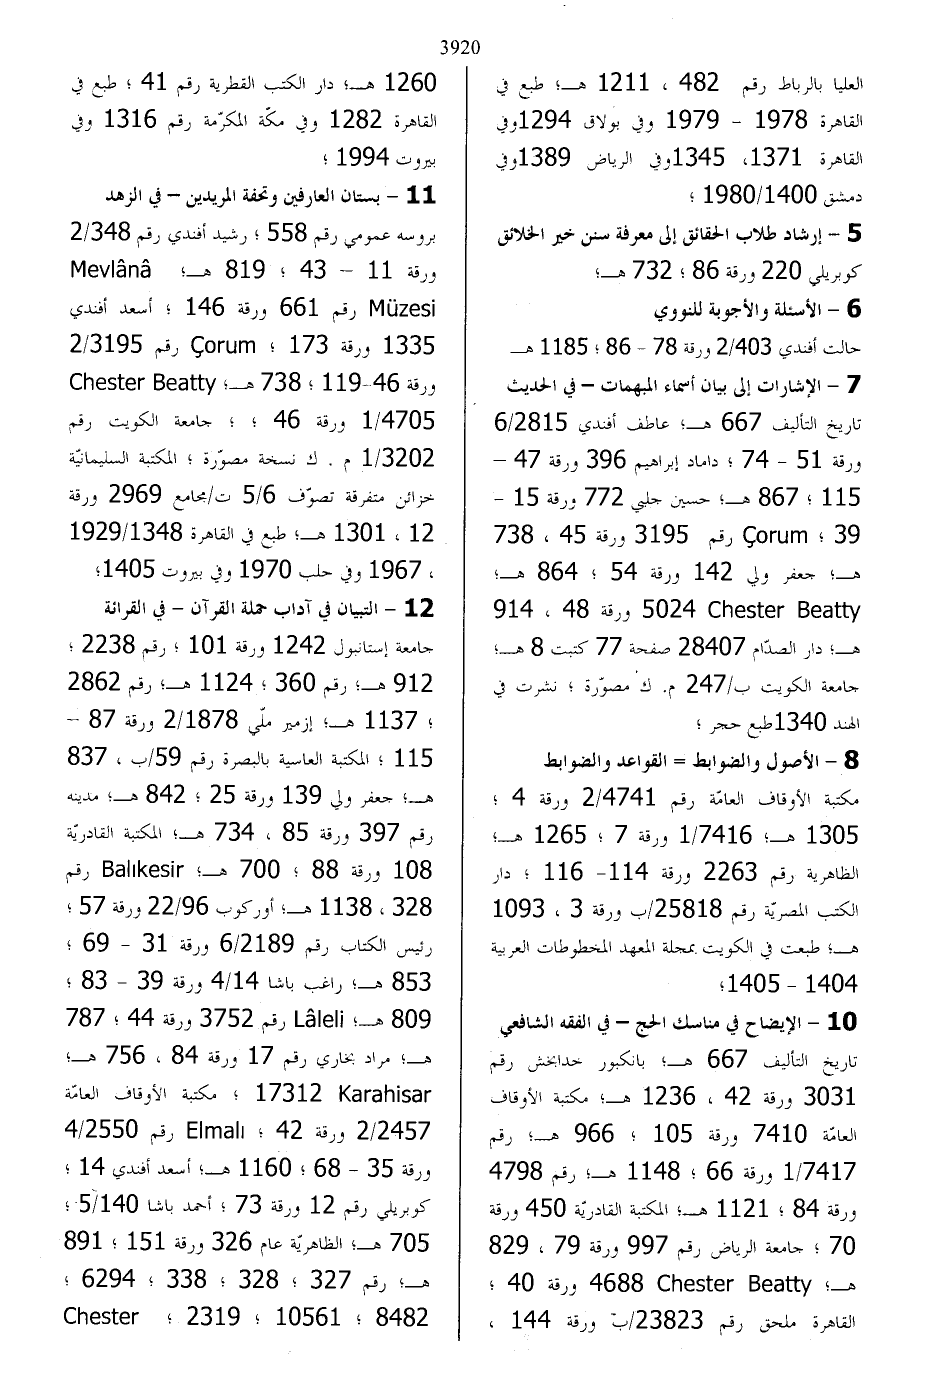 3920
العليا بالرباط رقم 482 ، 1211 هـ؛ طبع في
القاهرة 1978 – 1979 وفي بولاق 1294وفي
القاهرة 1371، 1345وفي الرياض 1389وفي
دمشق 1980/1400 ؛
5 – إرشاد طلاب الحقائق إلى معرفة سنن خير الخلائق
كوبريلي 220 ورقة 86 ؛ 732 هـ؛
6 – الأسئلة والأجوبة للنووي
حالت أفندي 2/403 ورقة 78 – 86 ؛ 1185 هـ
7 – الإشارات إلى بيان أسماء المبهمات – في الحديث
تاريخ التأليف 667 هـ؛ عاطف أفندي 6/2815
ورقة 51 – 74 ؛ داماد إبراهيم 396 ورقة 47 –
115 ؛ 867 هـ؛ حسين جلبي 772 ورقة 15 –
39 ؛ Çorum رقم 3195 ورقة 45 ، 738
هـ؛ جعفر ولي 142 ورقة 54 ؛ 864 هـ؛
Chester Beatty 5024 ورقة 48 ، 914
هـ؛ دار الصدّام 28407 صفحة 77 كتبت 8 هـ؛
جامعة الكويت ب/247 م. ك مصوّرة ؛ نشرت في
الهند 1340طبع حجر ؛
8 – الأصول والضوابط = القواعد والضوابط
مكتبة الأوقاف العامّة رقم 2/4741 ورقة 4 ؛
1305 هـ؛ 1/7416 ورقة 7 ؛ 1265 هـ؛
الظاهرية رقم 2263 ورقة 114– 116 ؛ دار
الكتب المصريّة رقم 25818/ب ورقة 3 ، 1093
هـ؛ طبعت في الكويت بمجلة المعهد المخطوطات العربية
1404 – 1405؛
10 – الإيضاح في مناسك الحج – في الفقه الشافعي
تاريخ التأليف 667 هـ؛ بانكبور خدابخش رقم
3031 ورقة 42 ، 1236 هـ؛ مكتبة الأوقاف
العامّة 7410 ورقة 105 ؛ 966 هـ؛ رقم
1/7417 ورقة 66 ؛ 1148 هـ؛ رقم 4798
ورقة 84 ؛ 1121 هـ؛ المكتبة القادريّة 450 ورقة
70 ؛ جامعة الرياض رقم 997 ورقة 79 ، 829
هـ؛ Chester Beatty 4688 ورقة 40 ؛
القاهرة ملحق رقم 23823/ب ورقة 144 ،
1260 هـ؛ دار الكتب القطرية رقم 41 ؛ طبع في
القاهرة 1282 وفي مكّة المكرّمة رقم 1316 وفي
بيروت 1994 ؛
11 – بستان العارفين وتحفة المريدين – في الزهد
بروسه عمومي رقم 558 ؛ رشيد أفندي رقم 2/348
ورقة 11 – 43 ؛ 819 هـ؛ Mevlânâ
Müzesi رقم 661 ورقة 146 ؛ أسعد أفندي
1335 ورقة 173 ؛ Çorum رقم 2/3195
ورقة 46–119 ؛ 738 هـ؛ Chester Beatty
1/4705 ورقة 46 ؛ ؛ جامعة الكويت رقم
1/3202 م . ك نسخة مصوّرة ؛ المكتبة السليمانيّة
خزائن متفرقة تصوّف 5/6 ت/مجامع 2969 ورقة
12 ، 1301 هـ؛ طبع في القاهرة 1929/1348
، 1967 وفي حلب 1970 وفي بيروت 1405؛
12 – التبيان في آداب حملة القرآن – في القرائة
جامعة إستانبول 1242 ورقة 101 ؛ رقم 2238 ؛
912 هـ؛ رقم 360 ؛ 1124 هـ؛ رقم 2862
؛ 1137 هـ؛ إزمير ملّي 2/1878 ورقة 87 –
115 ؛ المكتبة العاسية بالبصرة رقم 59/ب ، 837
هـ؛ جعفر ولي 139 ورقة 25 ؛ 842 هـ؛ مدينه
رقم 397 ورقة 85 ، 734 هـ؛ المكتبة القادريّة
108 ورقة 88 ؛ 700 هـ؛ Balıkesir رقم
328 ، 1138 هـ؛ أوركوب 22/96 ورقة 57 ؛
رئيس الكتاب رقم 6/2189 ورقة 31 – 69 ؛
853 هـ؛ راغب باشا 4/14 ورقة 39 – 83 ؛
809 هـ؛ Lâleli رقم 3752 ورقة 44 ؛ 787
هـ؛ مراد بخاري رقم 17 ورقة 84 ، 756 هـ؛
Karahisar 17312 ؛ مكتبة الأوقاف العامّة
2/2457 ورقة 42 ؛ Elmalı رقم 4/2550
ورقة 35 – 68 ؛ 1160 هـ؛ أسعد أفندي 14 ؛
كوبريلي رقم 12 ورقة 73 ؛ أحمد باشا 5/140 ؛
705 هـ؛ الظاهريّة عام 326 ورقة 151 ؛ 891
هـ؛ رقم 327 ؛ 328 ؛ 338 ؛ 6294 ؛
8482 ؛ 10561 ؛ 2319 ؛ Chester